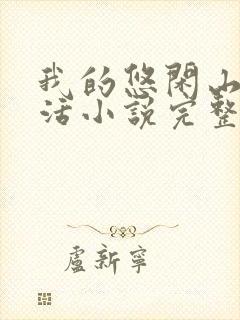 我的悠閑山
活小説完整
盧新寧